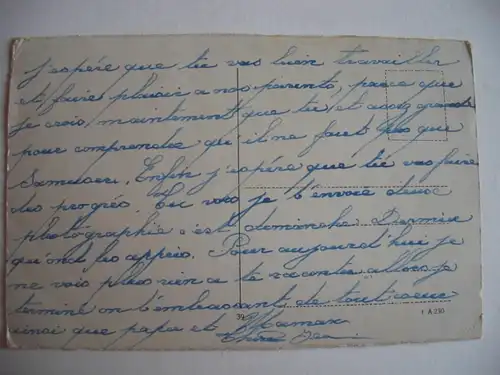 j'espère que tu vas bien travailler
et faire plaisir a nos parents, parce que
je crois maintement que tu et assez grande
pour comprendre qu'il ne faut pas que
s'amuser. Enfin j'espère que tu vas faire
des progrés. Tu vois je t'envoie deux
photographie s'est dimanche dernier
qu'ond les appris. Pour aujourd'hui je
ne vois plus rien a te raconter alors je
termine en t'embrassant de tout cœur
ainsi que papa et Maman
39
1 A 230